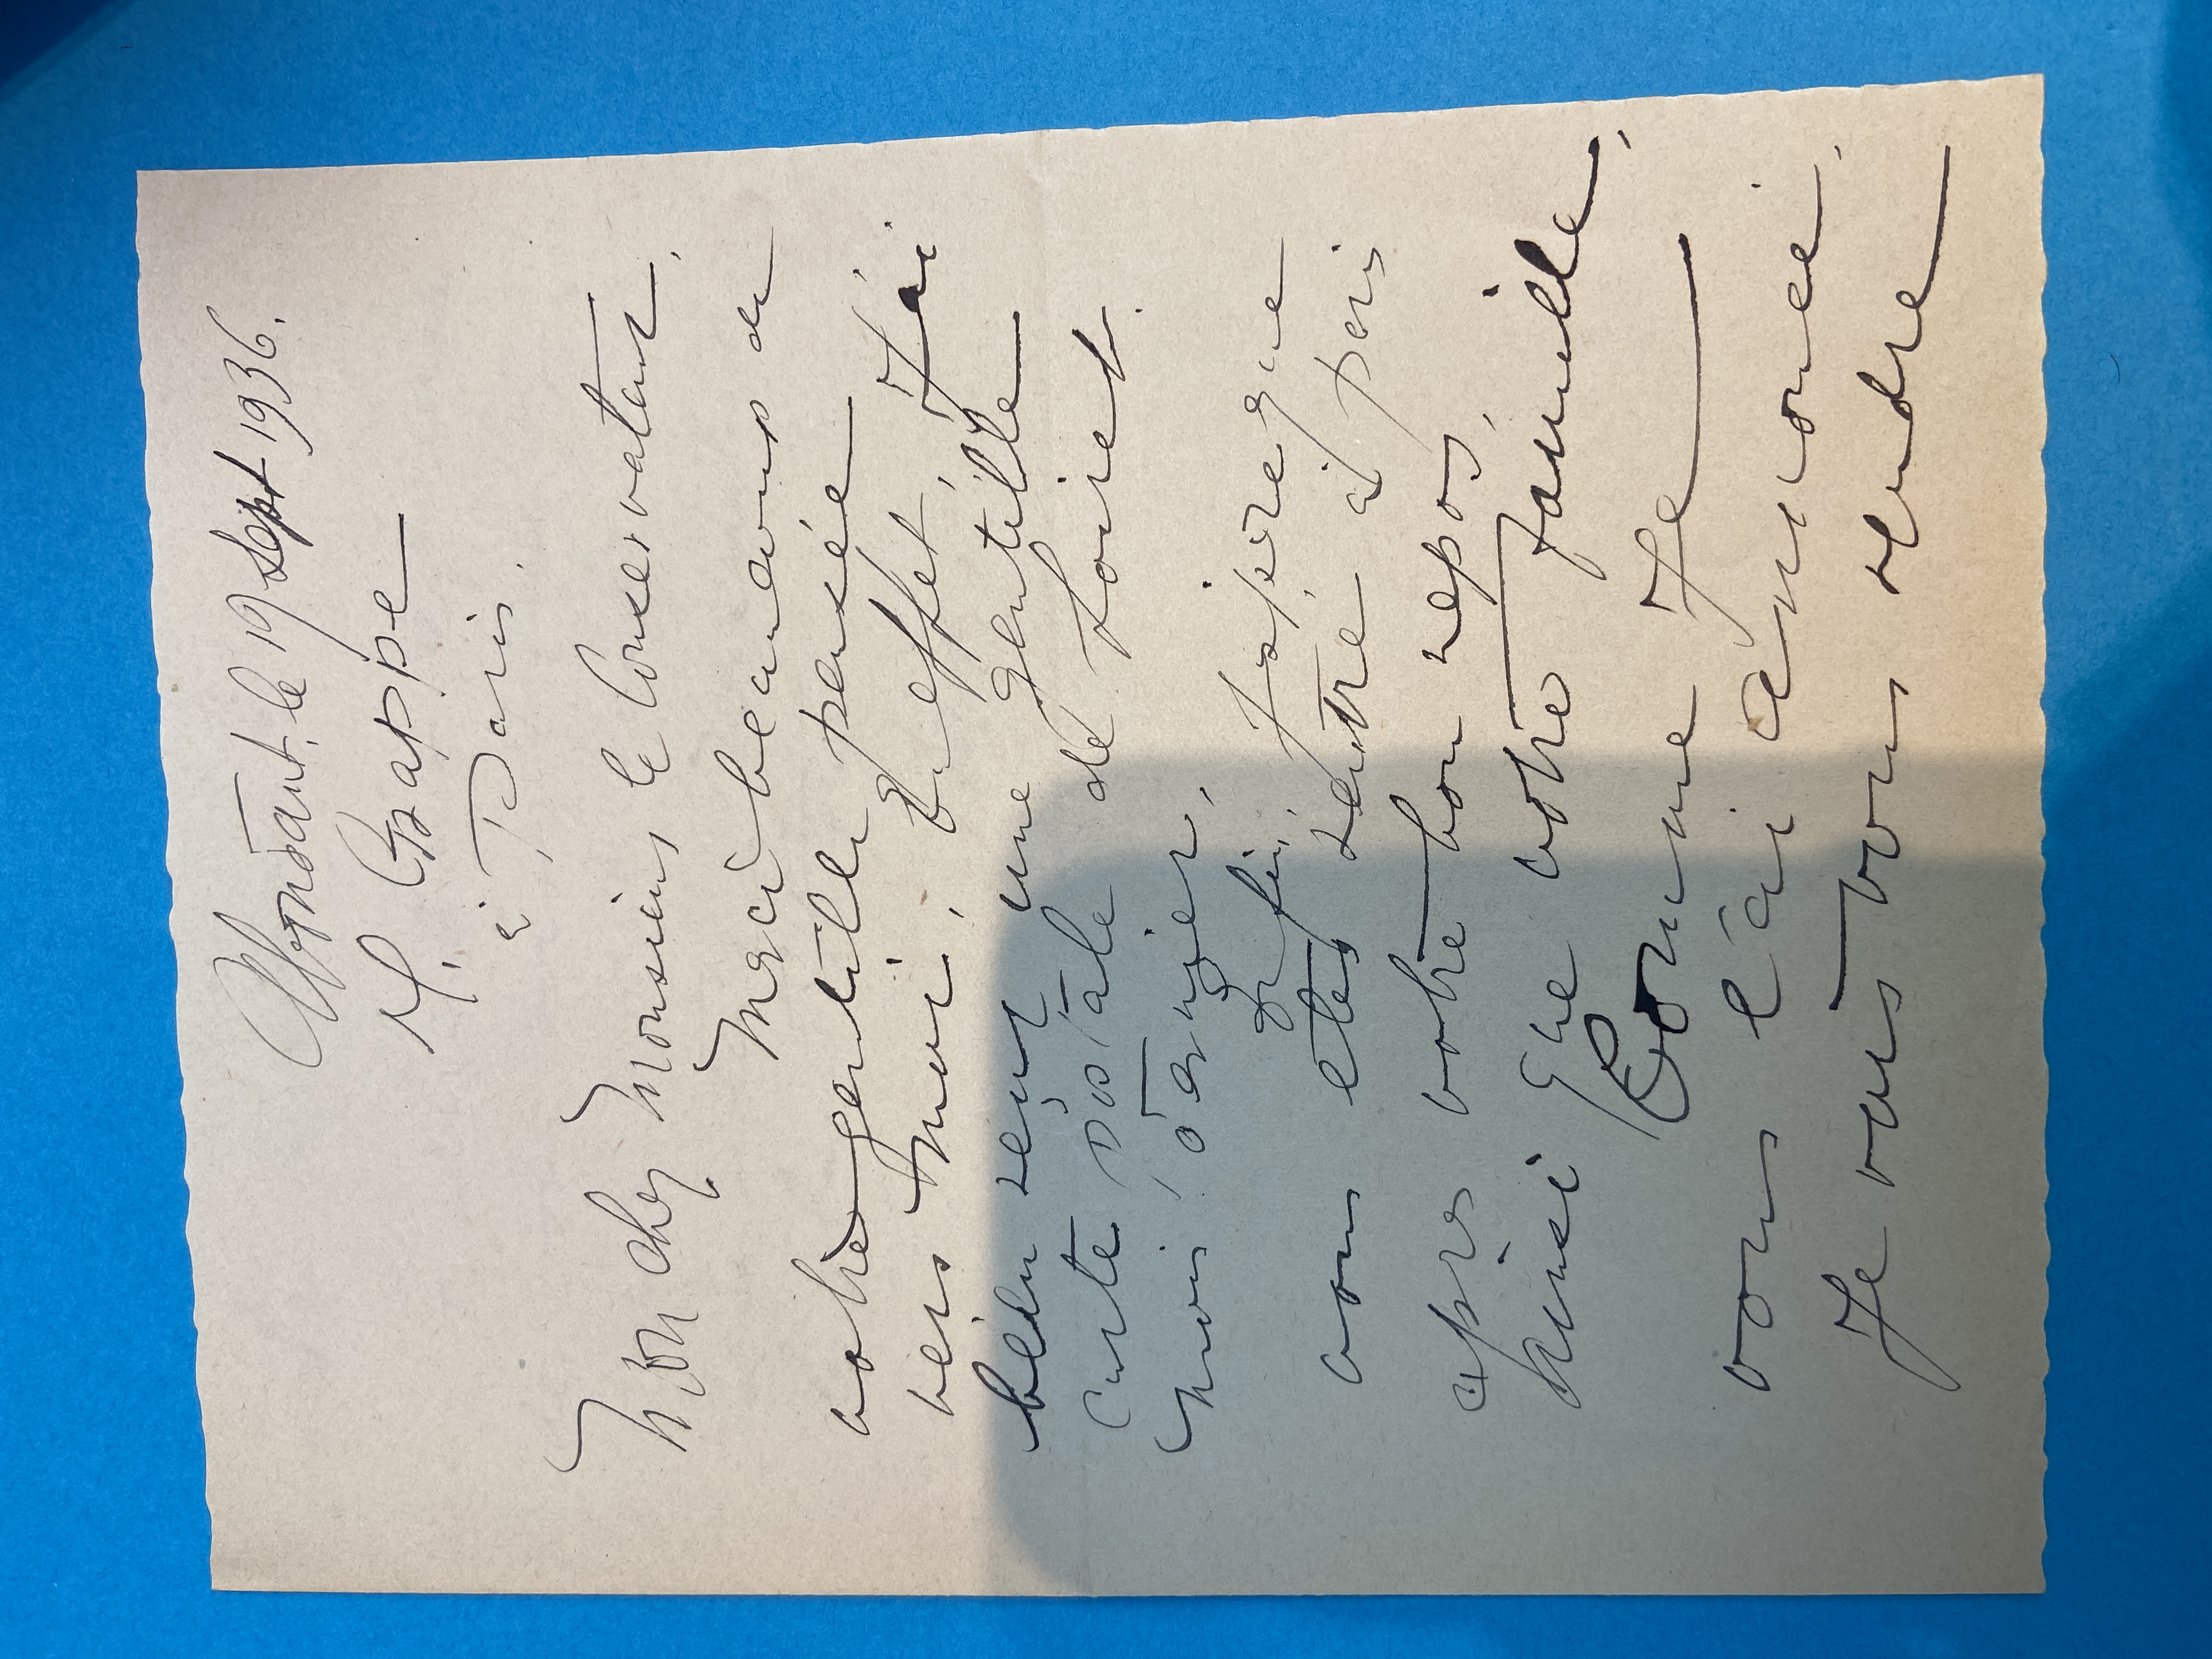 le 19 Sept 1936.
M. Grappe
à Paris.
Mon cher Monsieur le Conservateur,
Merci beaucoup de
votre gentille pensée
vers moi. En effet, J'ai
bien reçu une gentille
Carte postale de Loriet
mois dernier,
Enfin, J'espère que
vous etes rentré à paris
après votre bon repos,
hinsi que votre famille,
Comme Je
vous l'ai annoncé,
Je vais vous rendre